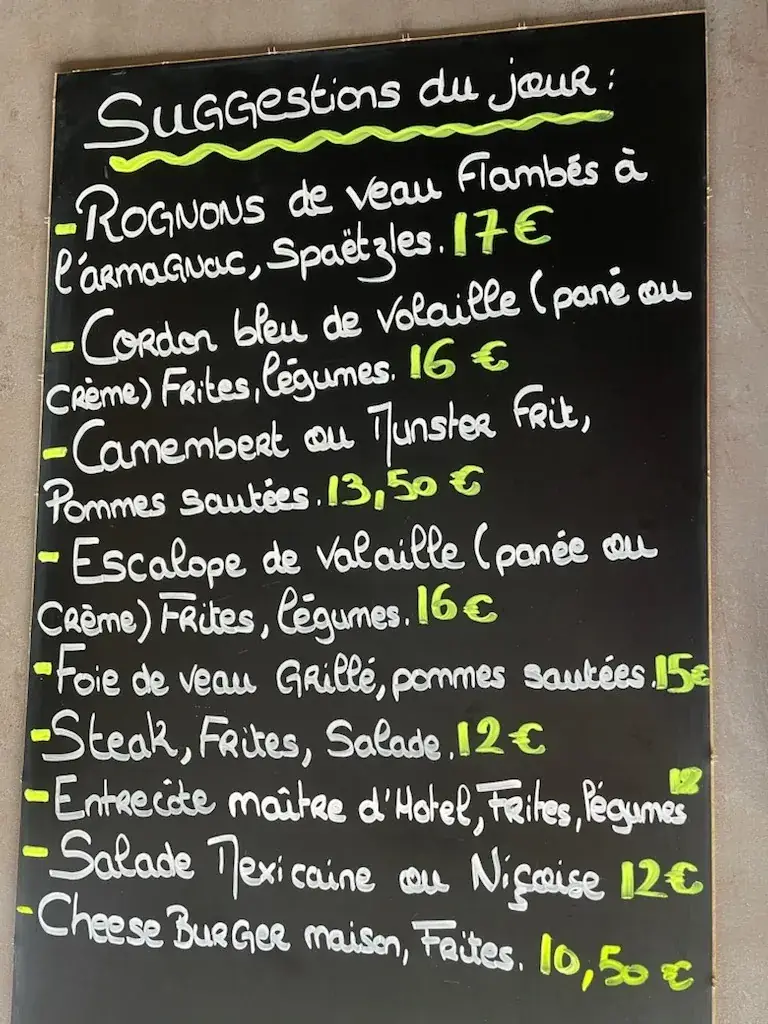 Suggestions du jour :
- Rognons de veau Flambés à
l'armagnac, Spaëtzles. 17€
- Cordon bleu de Volaille (pané ou
crème) Frites, légumes. 16 €
- Camembert ou Munster Frit,
Pommes sautées. 13,50 €
- Escalope de Volaille (panée ou
crème) Frites, légumes. 16€
- Foie de veau Grillé, pommes sautées. 15€
- Steak, Frites, Salade. 12€
- Entrecôte maître d'Hotel, Frites, légumes
- Salade Mexicaine ou Niçoise 12€
- Cheese Burger maison, Frites. 10,50 €